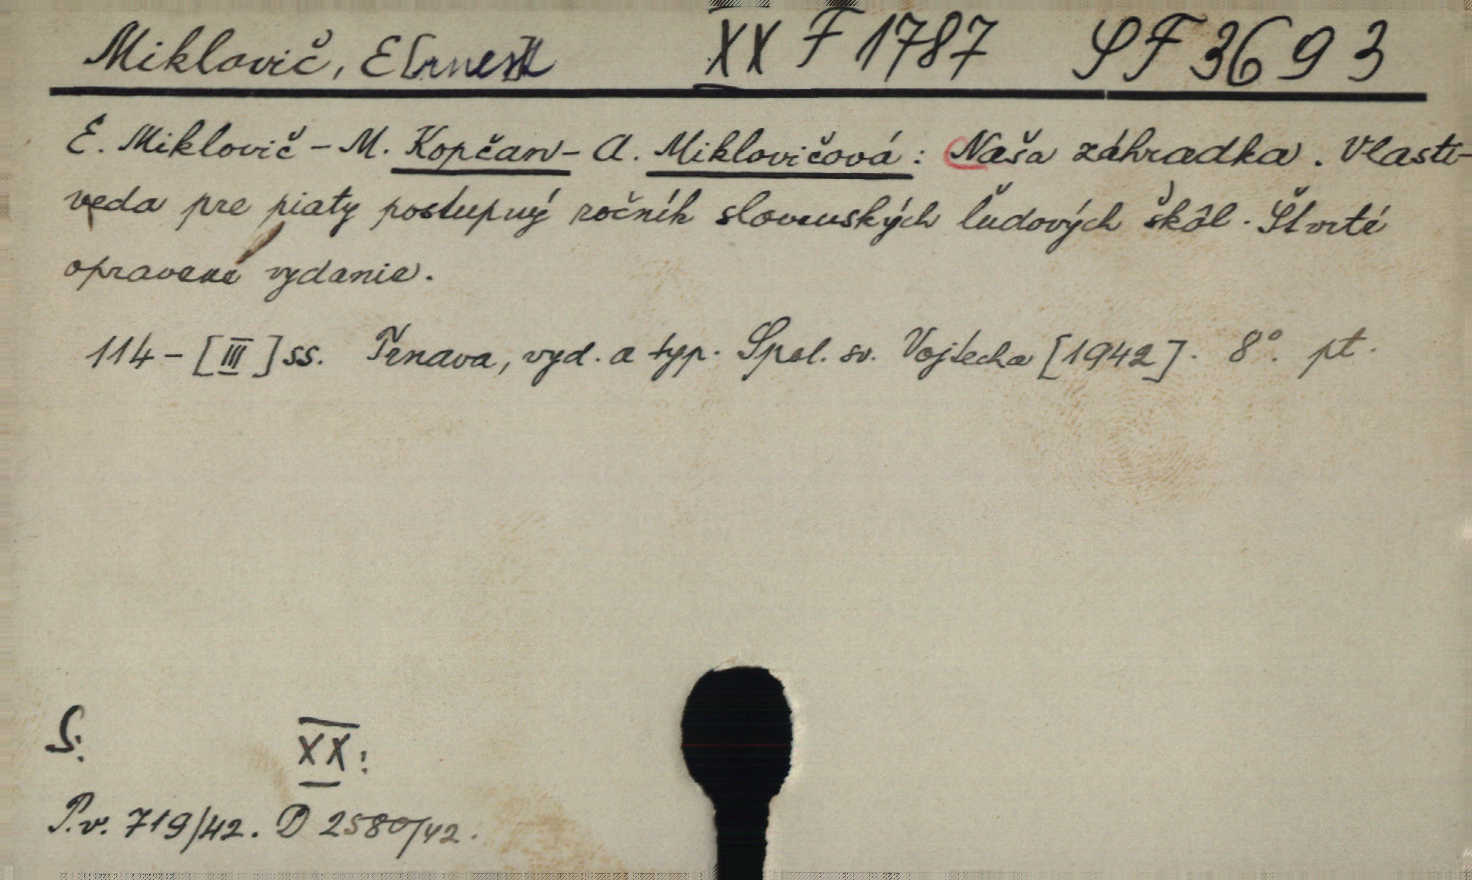 Miklovič, E[rnest] XX F 1787 SF 3693
E. Miklovič - M. Kopčan - A. Miklovičová: Naša záhradka. Vlasti-
veda pre piaty postupný ročník slovenských ľudových škôl. Štvrté
opravené vydanie.
114 - [III] ss. Trnava, vyd. a typ. Spol. sv. Vojtecha [1942]. 8°. pt.
S: XX:
P.v. 719/42. D 2580/42.